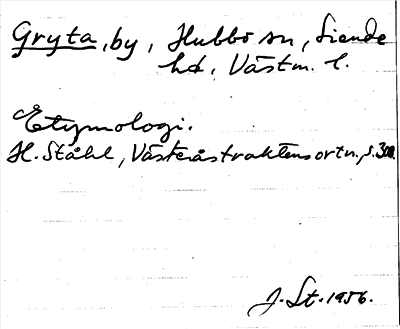 Gryta, by, Hubbo sn, Siende
hd, Västm. l.
Etymologi.
H. Ståhl, Västeråstraktens ortn., s.
J. St. 1956.